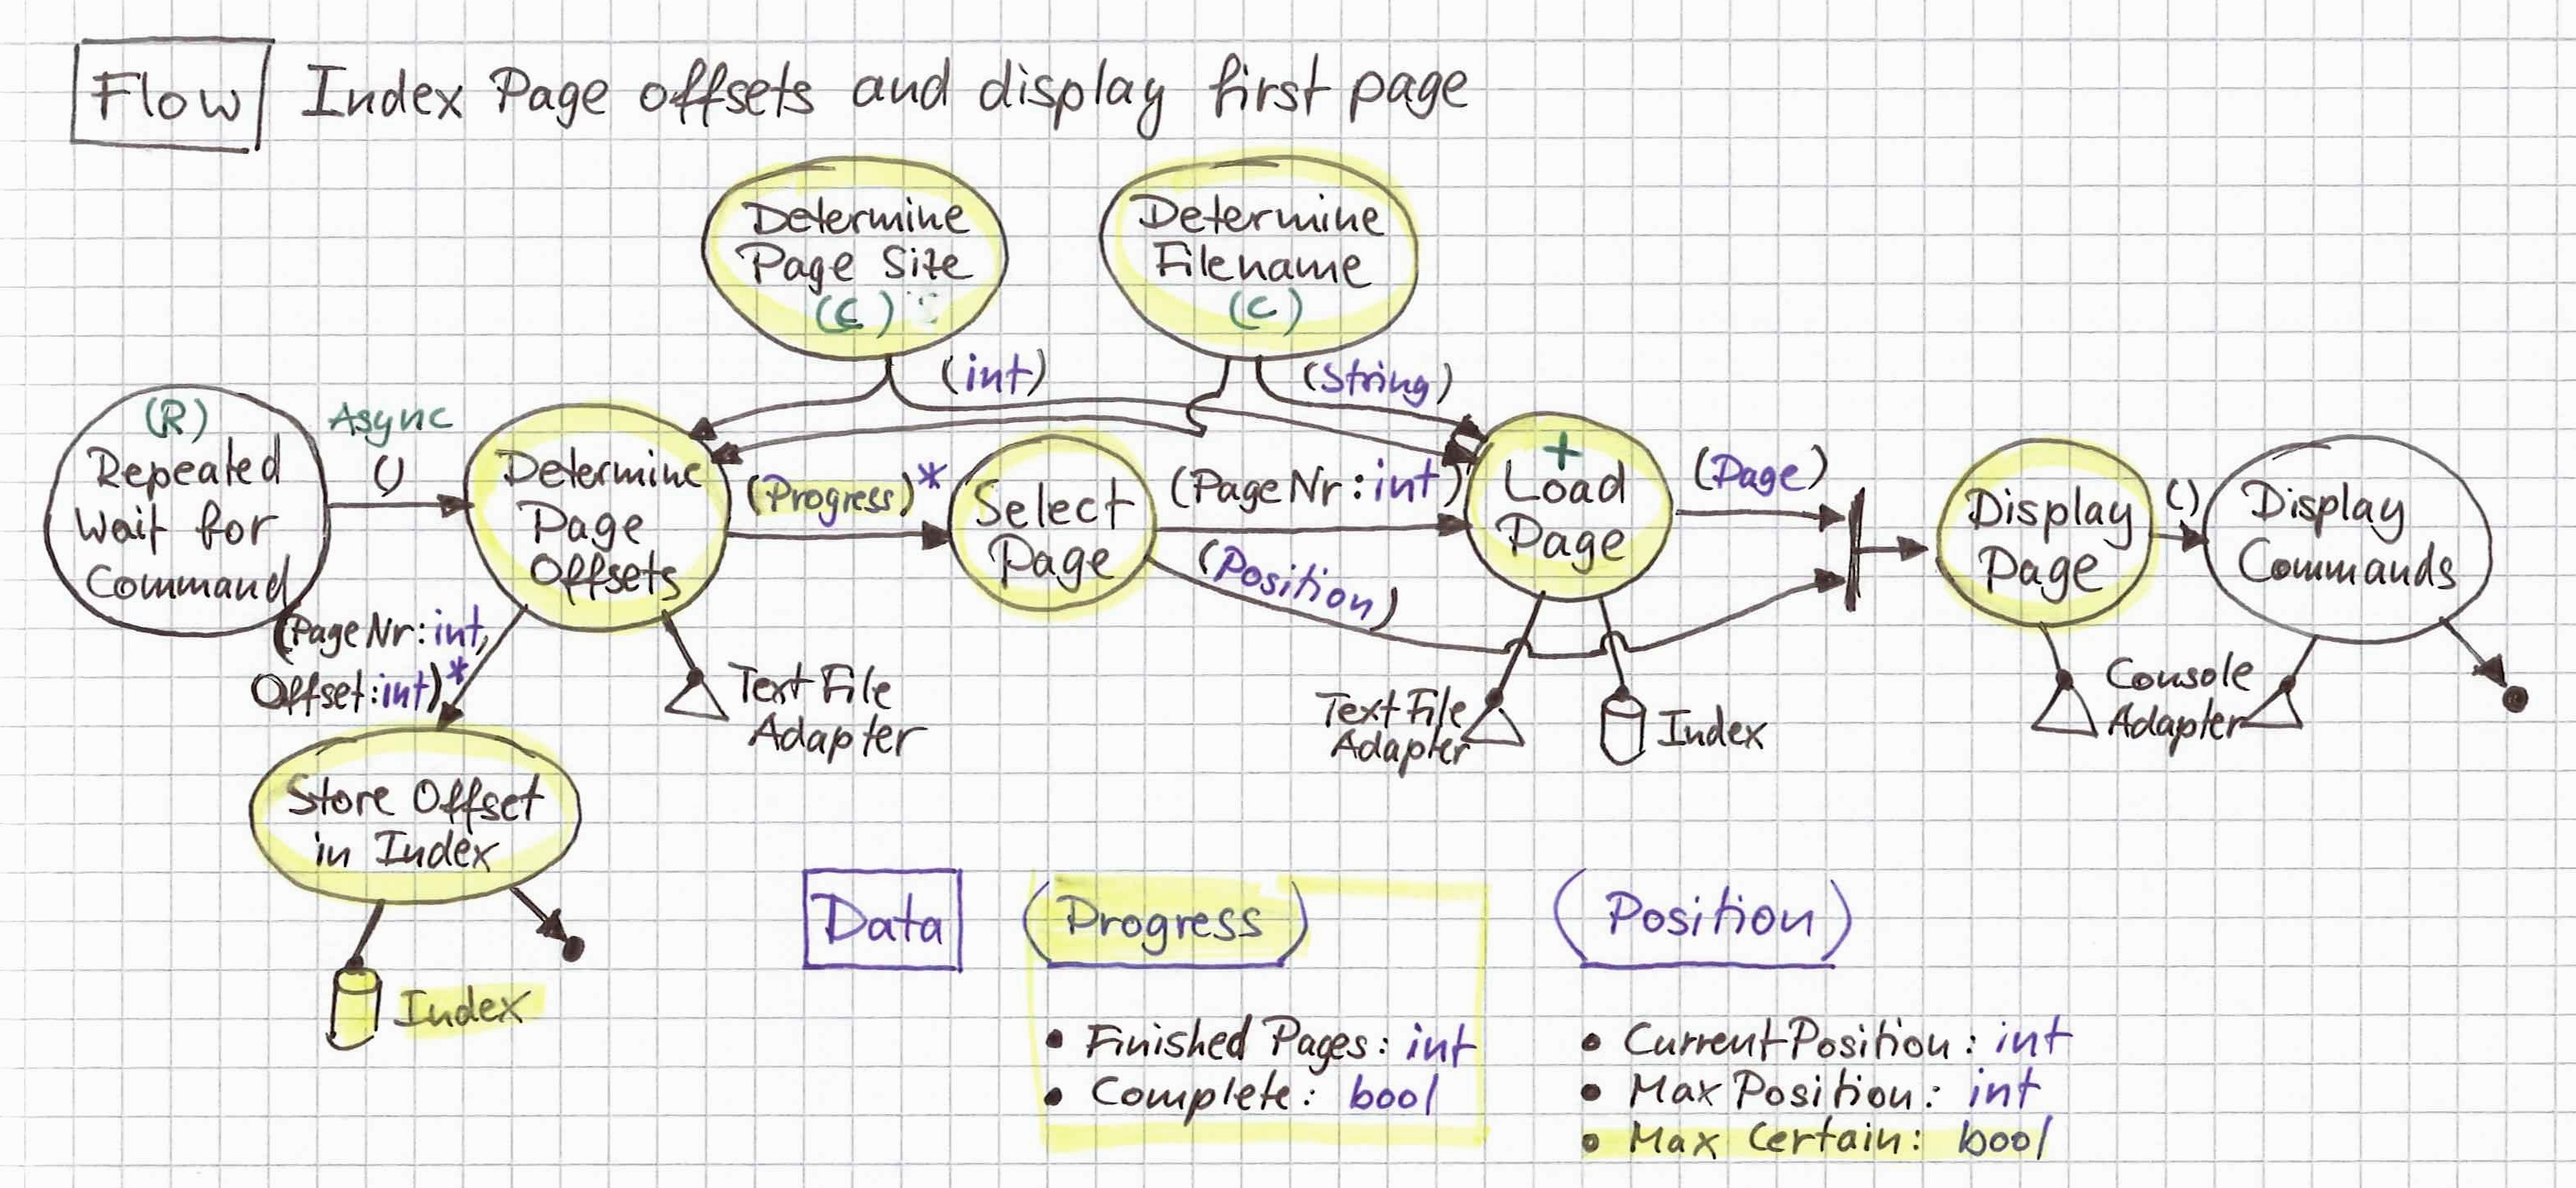 Flow Index Page offsets and display first page
Determine
Page Size
(C)
Determine
Filename
(C)
(int)
(String)
(R)
Repeated
Wait for
Command
Async
()
Determine
Page
Offsets
(Progress)*
Select
Page
(PageNr: int)
(Position)
+
Load
Page
(Page)
Display
Page
()
Display
Commands
(PageNr: int,
Offset: int)*
Text File
Adapter
Text File
Adapter
Index
Console
Adapter
Store Offset
in Index
Index
Data
(Progress)
• Finished Pages: int
• Complete: bool
(Position)
• CurrentPosition: int
• Max Position: int
• Max Certain: bool